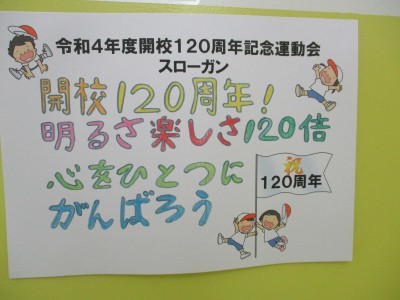 令和4年度開校120周年記念運動会
スローガン
開校120周年!
明るさ楽しさ120倍
心をひとつに
がんばろう
祝
120周年